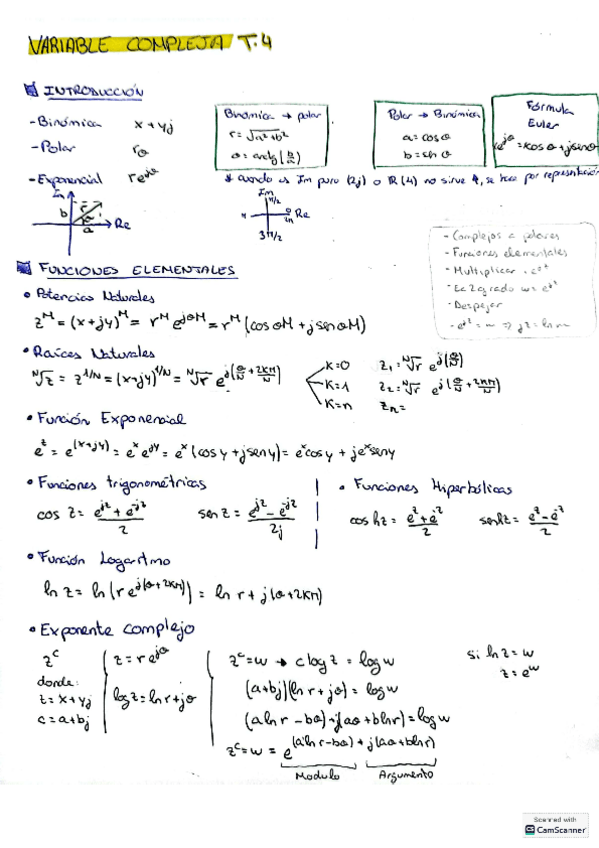 VARIABLE COMPLEJA T.4
INTRODUCCIÓN
- Binómica x + yj
- Polar rθ
- Exponencial re^jθ
Binómica → polar
r = √(a²+b²)
θ = arctg(b/a)
Polar → Binómica
a = cos θ
b = sen θ
Fórmula
Euler
re^jθ = rcosθ + jsenθ
* cuando es Im puro (2j) o R (4) no sirve, se hace por representación
Im
b
r
a
Re
Im
π/2
π
0
2π
Re
3π/2
- Complejos a polares
- Funciones elementales
- Multiplicar
- Ec 2 grado
- Despejar
FUNCIONES ELEMENTALES
• Potencias Naturales
z^M = (x+jy)^M = r^M e^jθM = r^M (cosθM + jsenθM)
• Raíces Naturales
ᴺ√z = z^1/N = (x+jy)^1/N = ᴺ√r e^j(θ/N + 2kπ/N)
K=0 z₁ = ᴺ√r e^j(θ/N)
K=1 z₂ = ᴺ√r e^j(θ/N + 2kπ/N)
K=n zₙ =
• Función Exponencial
e^z = e^(x+jy) = e^x e^jy = e^x (cosy + jseny) = e^x cosy + je^x seny
• Funciones trigonométricas
cos z = (e^jz + e^-jz)/2 sen z = (e^jz - e^-jz)/2j
• Funciones Hiperbólicas
cos hz = (e^z + e^-z)/2 senhz = (e^z - e^-z)/2
• Función Logaritmo
ln z = ln(r e^j(θ+2kπ)) = ln r + j(θ+2kπ)
• Exponente complejo
z^c
donde:
z = x + yj
c = a + bj
z = re^jθ
log z = ln r + jθ
z^c = w → c log z = log w
(a+bj)(ln r + jθ) = log w
(a ln r - bθ) + j(aθ + b ln r) = log w
z^c = w = e^(a ln r - bθ) + j(aθ + b ln r)
Modulo Argumento
si ln z = w
z = e^w
Scanned with
CS CamScanner